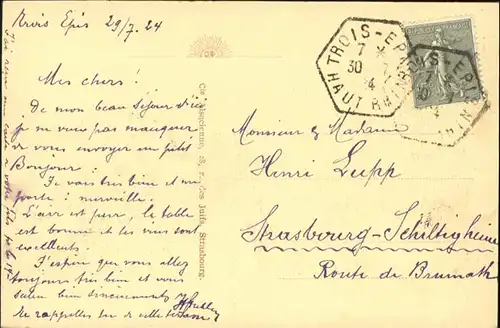 Trois Epis 29/7.24
Mes chers!
De mon beau séjour d'ici
je ne veux pas manquer
de vous envoyer un petit
Bonjour.
Je vais très bien et me
porte à merveille.
L'air est pur, la table
est bonne et les vues sont
excellents.
J'espère que vous allez
toujours très bien et vous
salue bien sincèrement
Cie Alsacienne, 18, r. des Juifs, Strasbourg.
TROIS-EPIS
7
30
HAUT RHIN
Monsieur & Madame
Henri Lupp
Strasbourg-Schiltigheim
Route de Brumath